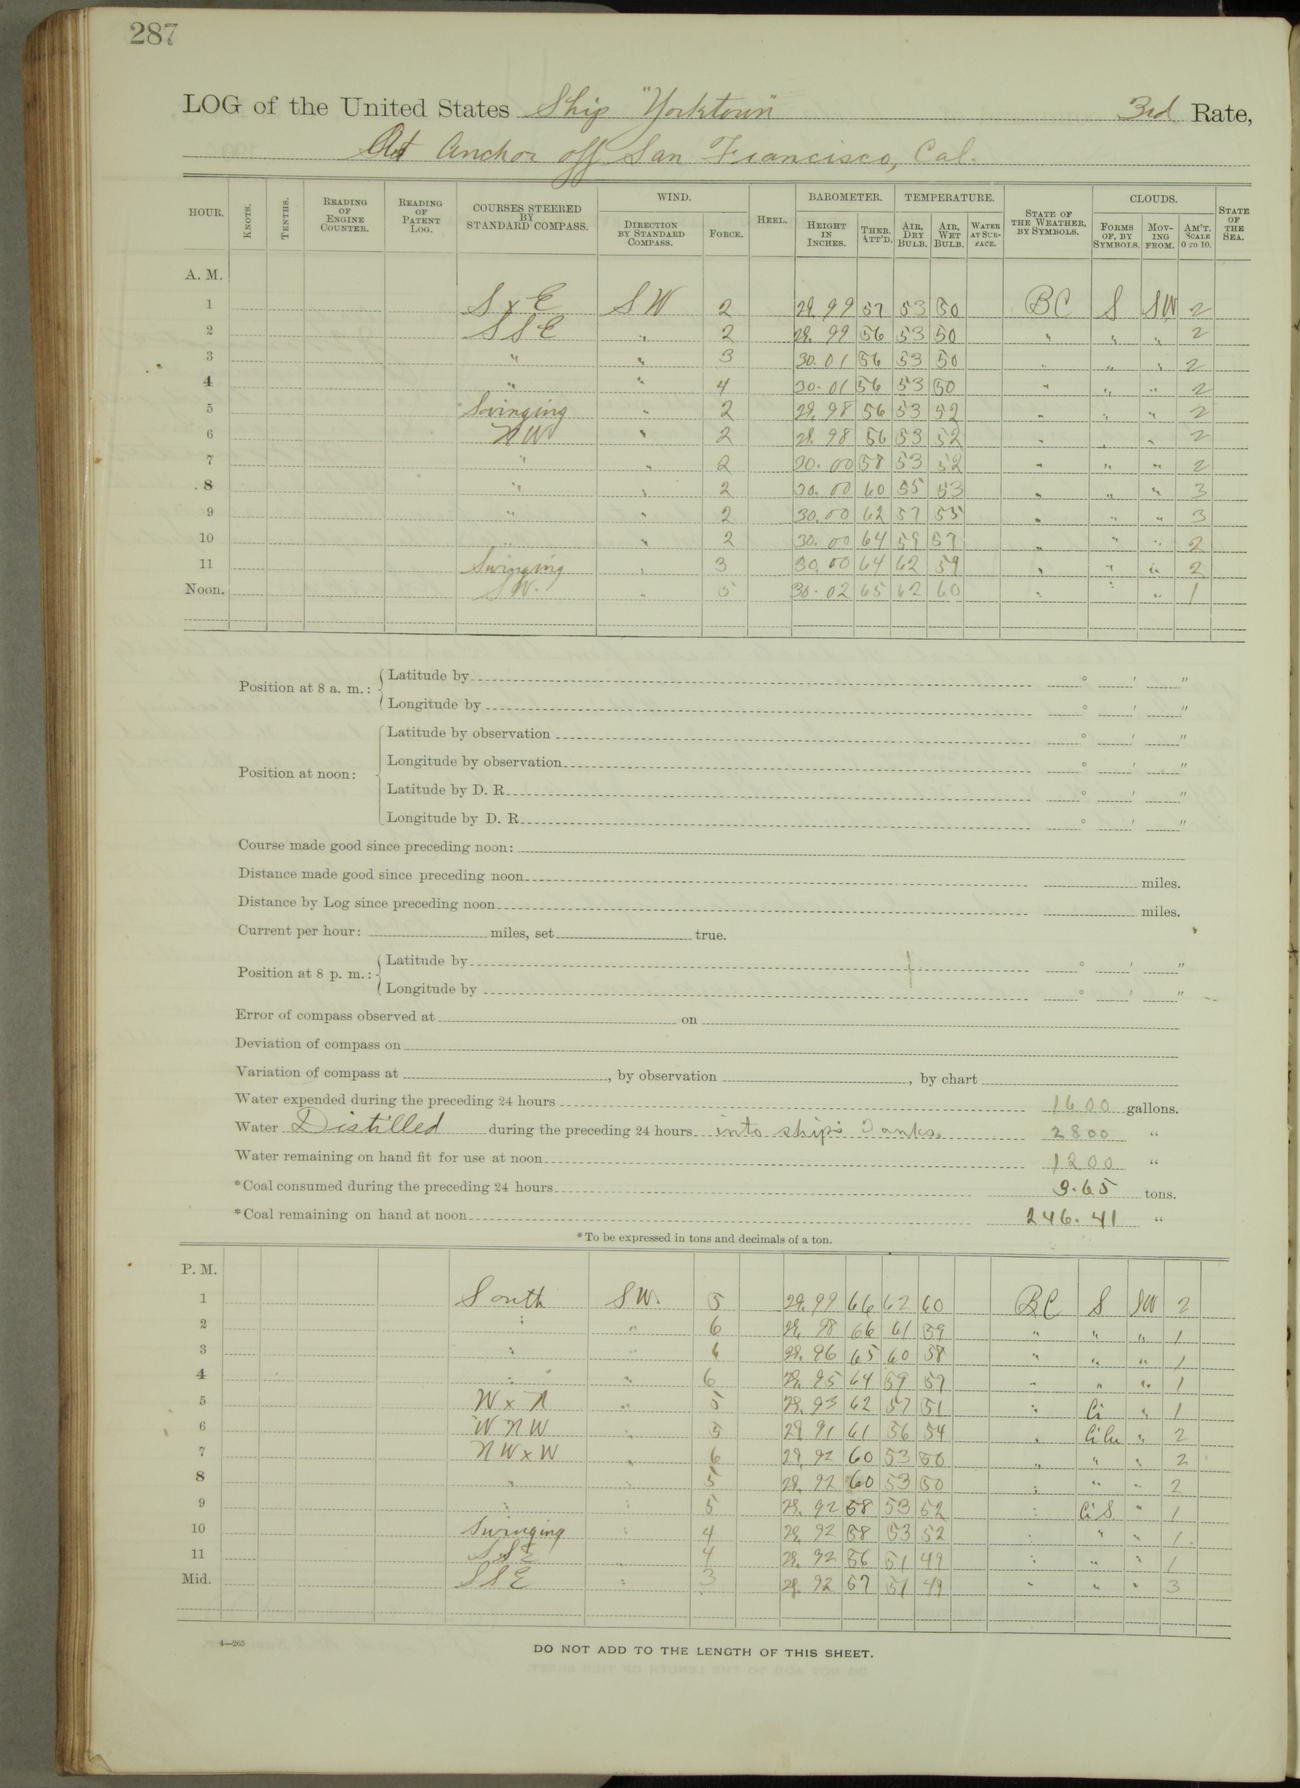 287
LOG of the United States Ship "Yorktown" 3rd Rate,
At Anchor off San Francisco, Cal.
HOUR. KNOTS. TENTHS. READING OF ENGINE COUNTER. READING OF PATENT LOG. COURSES STEERED BY STANDARD COMPASS. WIND. DIRECTION BY STANDARD COMPASS. FORCE. HEEL. BAROMETER. HEIGHT IN INCHES. THER. ATT'D. TEMPERATURE. AIR, DRY BULB. AIR, WET BULB. WATER AT SURFACE. STATE OF THE WEATHER, BY SYMBOLS. CLOUDS. FORMS OF, BY SYMBOLS. MOVING FROM. AM'T. SCALE 0 TO 10. STATE OF THE SEA.
A. M.
1 S x E SW 2 29.99 57 53 50 BC S SW 2
2 SSE " 2 29.99 56 53 50 " " " 2
3 " " 3 30.01 56 53 50 " " " 2
4 " " 4 30.01 56 53 50 " " " 2
5 Swinging " 2 29.98 56 53 52 " " " 2
6 NW " 2 29.98 56 53 52 " " " 2
7 " " 2 30.00 58 53 52 " " " 2
8 " " 2 30.00 60 55 53 " " " 3
9 " " 2 30.00 62 57 55 " " " 3
10 " " 2 30.00 64 59 57 " " " 2
11 Swinging " 3 30.00 64 62 59 " " " 2
Noon. SW. " 5 30.02 65 62 60 " " " 1
Position at 8 a. m.: Latitude by ° ' "
Longitude by ° ' "
Position at noon: Latitude by observation ° ' "
Longitude by observation ° ' "
Latitude by D. R. ° ' "
Longitude by D. R. ° ' "
Course made good since preceding noon:
Distance made good since preceding noon miles.
Distance by Log since preceding noon miles.
Current per hour: miles, set true.
Position at 8 p. m.: Latitude by ° ' "
Longitude by ° ' "
Error of compass observed at on
Deviation of compass on
Variation of compass at , by observation , by chart
Water expended during the preceding 24 hours 1600 gallons.
Water Distilled during the preceding 24 hours into ship's Tanks. 2800 "
Water remaining on hand fit for use at noon 1200 "
*Coal consumed during the preceding 24 hours 9.65 tons.
*Coal remaining on hand at noon 246.41 "
*To be expressed in tons and decimals of a ton.
P. M.
1 South SW. 5 29.99 66 62 60 BC S SW 2
2 " " 6 29.98 66 61 59 " " " 1
3 " " 6 29.96 65 60 58 " " " 1
4 " " 6 29.95 64 59 57 " " " 1
5 W x N " 5 29.93 62 57 51 " Ci " 1
6 WNW " 5 29.91 61 56 54 " CiCu " 2
7 NW x W " 6 29.92 60 53 50 " " " 2
8 " " 5 29.92 60 53 50 " " " 2
9 " " 5 29.92 58 53 52 " Ci S. " 1
10 Swinging " 4 29.92 58 53 52 " " " 1.
11 SSE " 4 29.92 56 51 49 " " " 1
Mid. SSE " 3 29.92 57 51 49 " " " 3
4—265
DO NOT ADD TO THE LENGTH OF THIS SHEET.